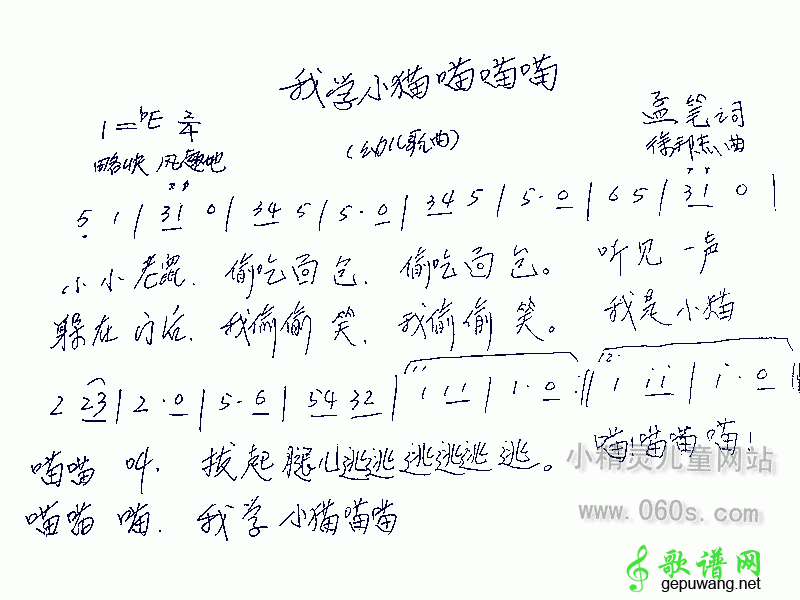 我学小猫喵喵喵
1=♭E 2/4
孟笔词
(幼儿歌曲)
略快 风趣地
徐邦杰曲
5 1 | 31 0 | 34 5 | 5·0 | 34 5 | 5·0 | 6 5 | 31 0 |
小小老鼠. 偷吃面包. 偷吃面包。 听见一声
躲在门后. 我偷偷笑. 我偷偷笑。 我是小猫
2 23 | 2·0 | 5·6 | 54 32 | 1. 1 11 | 1·0 :|| 2. i ii | i·0 ||
喵喵叫. 拔起腿儿逃逃逃逃逃逃。 喵!喵喵喵!
喵喵喵. 我学小猫喵喵喵
小精灵儿童网站
www.060s.com
歌谱网
gepuwang.net